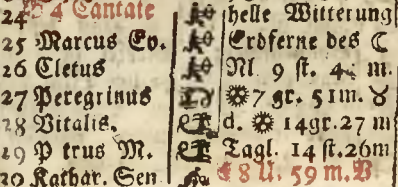 24 4 Cantate helle Witterung
25 Marcus Ev. Erdferne des ☾
26 Cletus Nl. 9 st. 4 m.
27 Peregrinus 7 gr. 51m. ♉
28 Vitalis. d. 14gr. 27 m
29 P trus M. Tagl. 14 st. 26m
30 Kathar. Sen 8 U. 59 m.